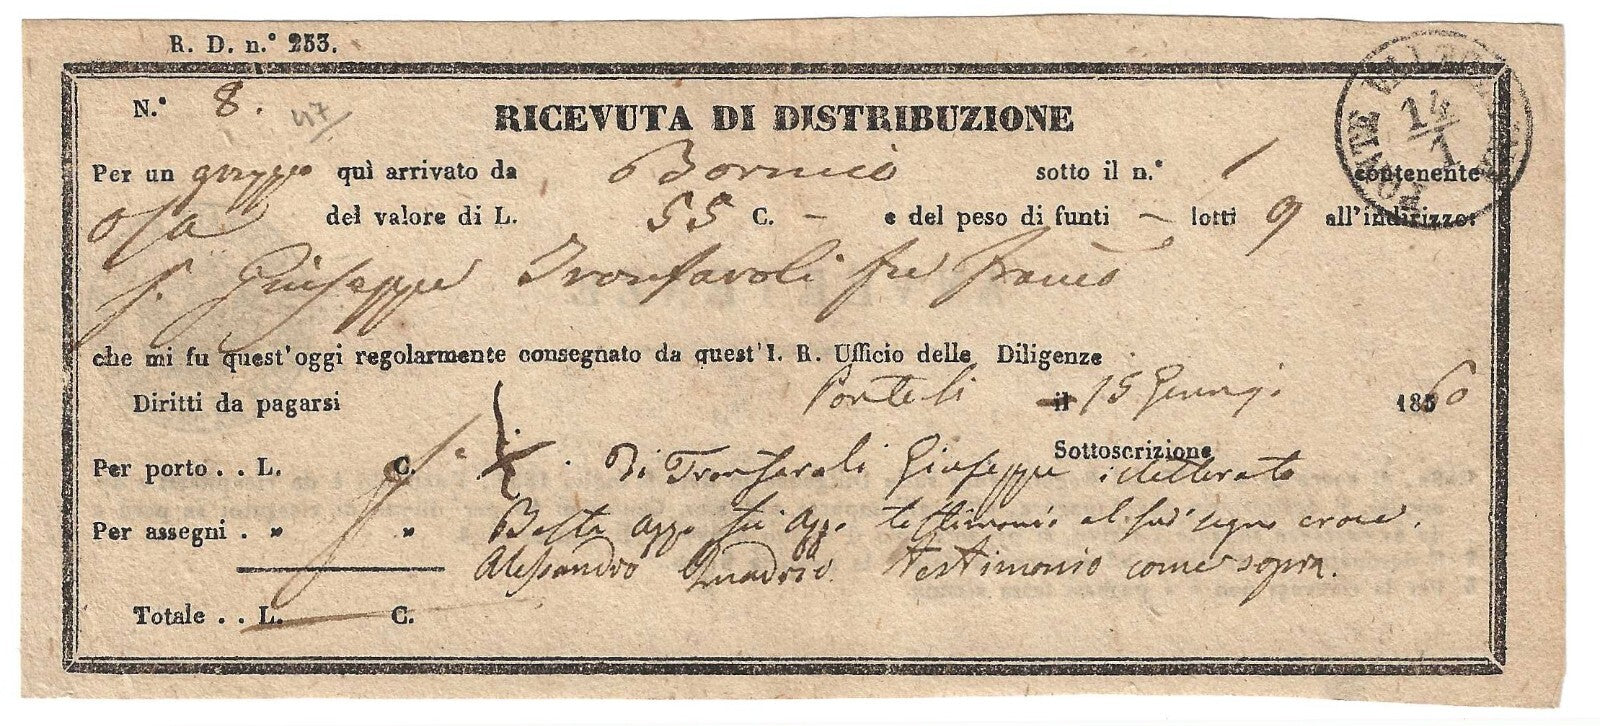 R. D. n.° 253.
N.° 8. 47/
RICEVUTA DI DISTRIBUZIONE
Per un gruppo quì arrivato da Bormio sotto il n.° 1 contenente
del valore di L. 55 C. - e del peso di funti - lotti 9 all'indirizzo:
Giuseppe fu Franco
che mi fu quest'oggi regolarmente consegnato da quest'I. R. Ufficio delle Diligenze
Diritti da pagarsi il 15 1860
Sottoscrizione
Per porto . . L. C. Di Giuseppe illetterato
Per assegni . » » testimonio al sud° segno croce.
Alessandro Quadrio testimonio come sopra.
Totale . . L. C.
PONTE VALTELLINA
14/1